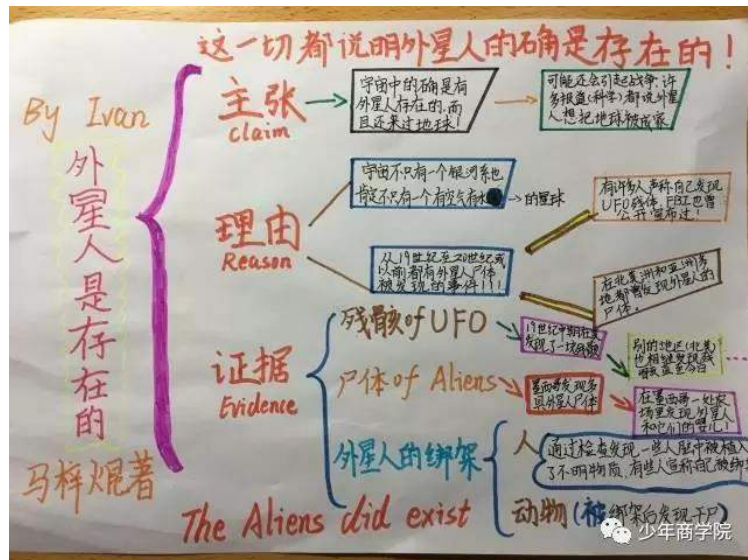 这一切都说明外星人的确是存在的！
By Ivan
外星人是存在的
马梓焜著
主张
claim
宇宙中的确是有
外星人存在的，而
且还来过地球！
可能还会引起战争；许
多报道(科学)都说外星
人想把地球
理由
Reason
宇宙不只有一个银河系也
肯定不只有一个有空气有水
的星球
从19世纪至20世纪或
以前都有外星人尸体
被发现的事件！！！
有许多人声称自己发现
UFO残体，FBI也曾
公开宣布过！
在北美洲和亚洲多
地都曾发现外星人的
尸体。
证据
Evidence
残骸of UFO
19世纪中期在美
发现了一块残骸
别的地区(北美)
也相继发现残
尸体of Aliens
墨西哥发现多
具外星人尸体
在墨西哥一处牧
场里发现外星人
和它们的婴儿！
外星人的绑架
人
通过检查发现一些人脑中被植入
了不明物质，有些人宣称自己被绑架
动物(被绑架后发现干尸
The Aliens did exist
少年商学院